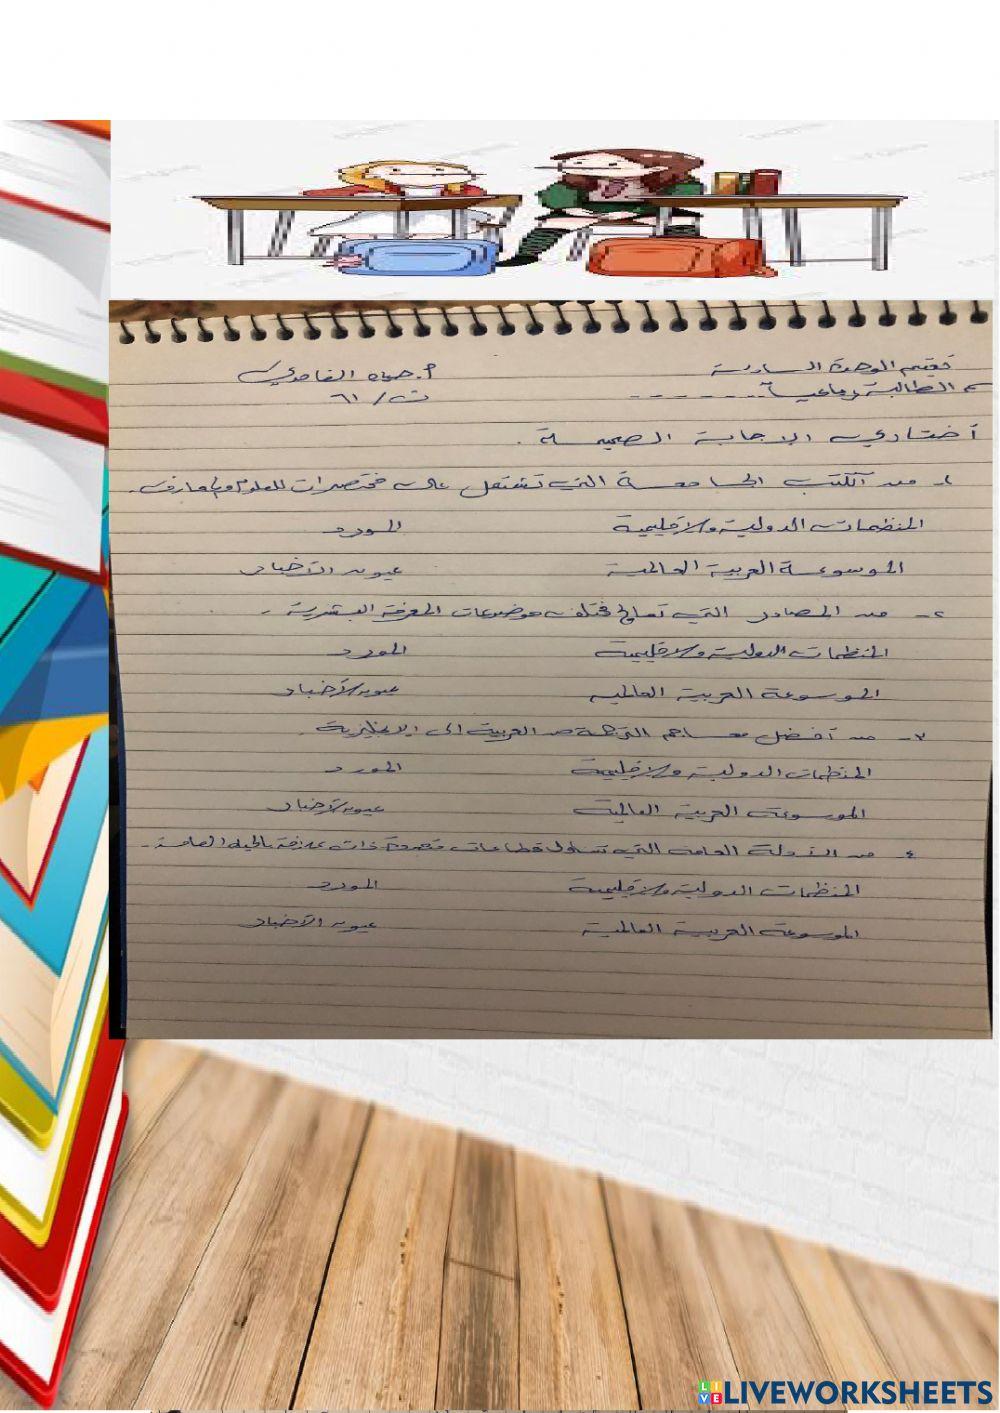 تقييم الوحدة السادسة
أ. حياة الغامدي
الطالبة رباعيا - - - - - - -
ث / ٦١
أختاري الإجابة الصحيحة .
١- من الكتب الجامعة التي تشتمل على مختصرات للعلوم والمعارف.
المنظمات الدولية والإقليمية
المورد
الموسوعة العربية العالمية
عيون الأخبار
٢- من المصادر التي تعالج مختلف موضوعات المعرفة البشرية .
المنظمات الدولية والإقليمية
المورد
الموسوعة العربية العالمية
عيون الأخبار
٣- من أفضل معاجم الترجمة من العربية الى الإنجليزية .
المنظمات الدولية والإقليمية
المورد
الموسوعة العربية العالمية
عيون الأخبار
٤- من الأدلة العامة التي تتناول قطاعات متعددة ذات علاقة بالحياة العامة.
المنظمات الدولية والإقليمية
المورد
الموسوعة العربية العالمية
عيون الأخبار
LIVEWORKSHEETS